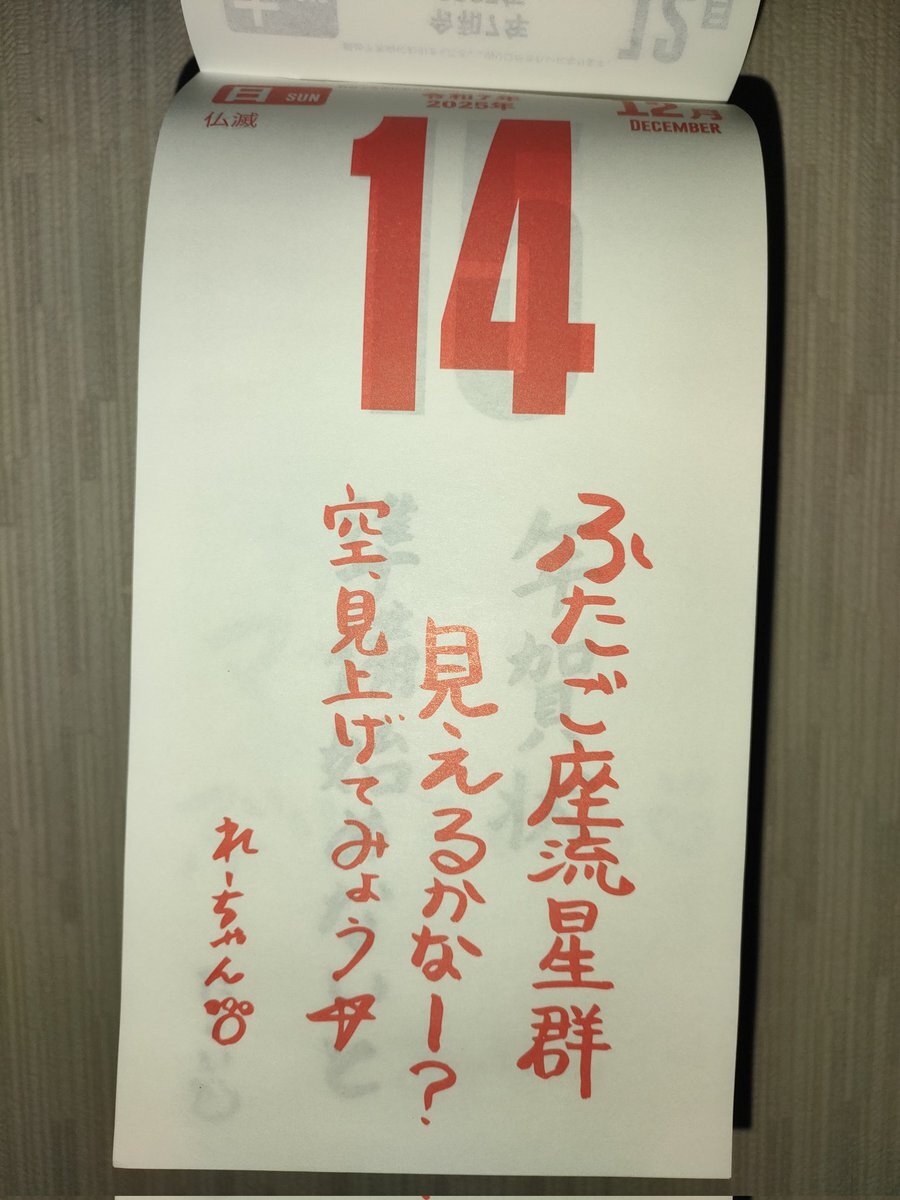 日 SUN
仏滅
令和7年
2025年
12月
DECEMBER
14
ふたご座流星群
見えるかなー?
空、見上げてみょう
れーちゃん